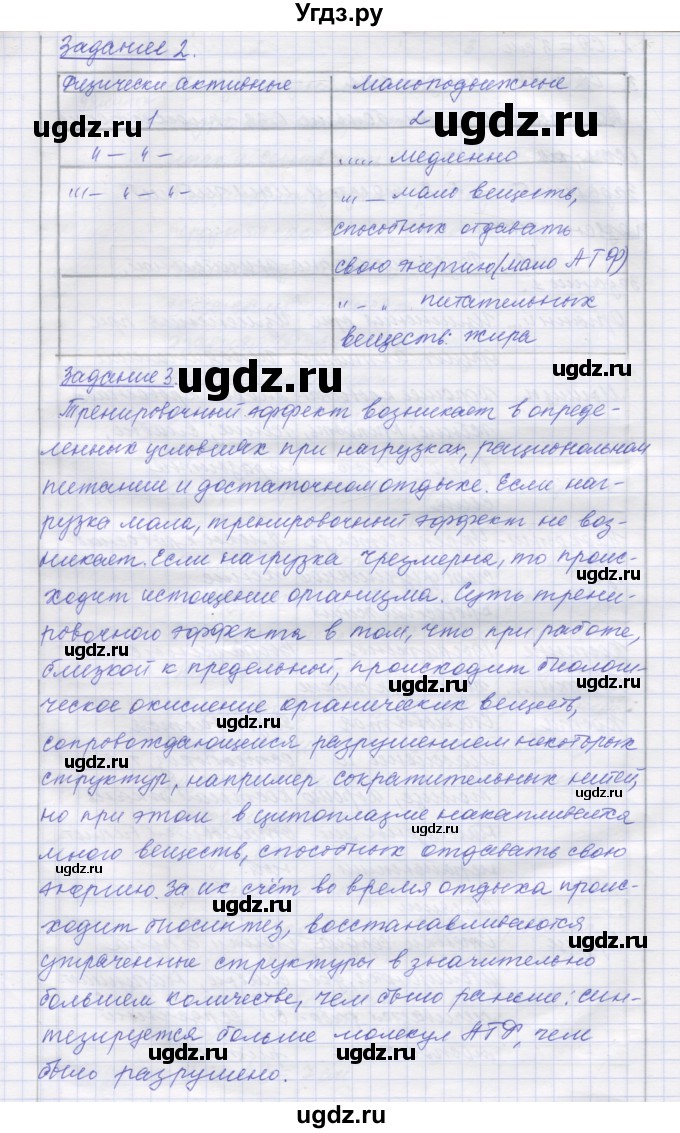 Угдз.ру
Задание 2.
Физически активные | Малоподвижные
1 | 2
ugdz.ru ugdz.ru
" – " – | ,,,,, медленно
'''' – " – " – | ''' – мало веществ,
способных отдавать
свою энергию (мало АТФ)
" – „ питательных
веществ: жира
Задание 3. ugdz.ru
Тренировочный эффект возникает в опреде-
ленных условиях при нагрузках, рациональном
ugdz.ru
питании и достаточном отдыхе. Если наг-
рузка мала, тренировочный эффект не воз-
никает. Если нагрузка чрезмерна, то проис-
ugdz.ru
ходит истощение организма. Суть трени-
ровочного эффекта в том, что при работе,
близкой к предельный, происходит биологи-
ugdz.ru
ческое окисление органических веществ,
ugdz.ru
сопровождающееся разрушением некоторых
структур, например сократительных нитей,
ugdz.ru
но при этом в цитоплазме накапливается
ugdz.ru
много веществ, способных отдавать свою
ugdz.ru
энергию. За их счёт во время отдыха проис-
ugdz.ru
ходит биосинтез, восстанавливаются
ugdz.ru
утраченные структуры в значительно
большем количестве, чем было раньше: син-
тезируется больше молекул АТФ, чем
ugdz.ru ugdz.ru
было разрушено.
ugdz.ru